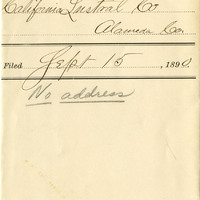 California Lustral Co
Alameda Co.
Filed Sept 15, 1890.
No address